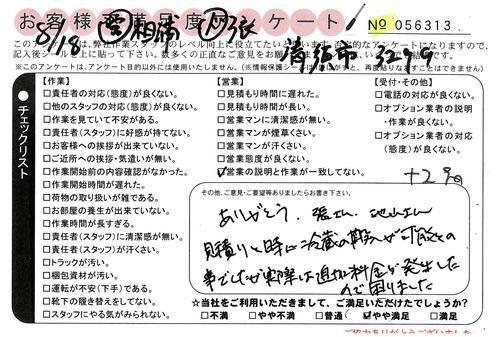 お客様満足度アンケート!
No 056313
8/18 営 相浦 作 張 清須市 3299
このアンケートは、弊社作業スタッフのレベル向上に役立てたいと
記入後シールを上に貼って下さい。数多くの正直なご意見をお
(※このアンケートは、アンケート目的以外には使用いたしません。
チェックリスト
【作業】
□責任者の対応(態度)が良くない。
□他のスタッフの対応(態度)が良くない。
□作業を見ていて不安がある。
□責任者(スタッフ)に好感が持てない。
□お客様への挨拶が出来ていない。
□ご近所への挨拶・気遣いが無い。
□作業開始前の内容確認がなかった。
□作業開始時間が遅れた。
□荷物の取り扱いが雑である。
□お部屋の養生が出来ていない。
□作業時間が長すぎる。
□責任者(スタッフ)に清潔感が無い。
□責任者(スタッフ)が汗くさい。
□トラックが汚い。
□梱包資材が汚い。
□運転が不安(下手)である。
□靴下の履き替えをしてくれない。
□スタッフにやる気がみられない。
【営業】
□見積もり時間に遅れた。
□見積もり時間が長い。
□営業マンに清潔感が無い。
□営業マンが煙草くさい。
□営業マンが汗くさい。
□営業態度が良くない。
☑営業の説明と作業が一致してない。
【受付・その他】
□電話の対応が良くない。
□オプション業者の説明
・作業が良くない。
□オプション業者の対応
(態度)が良くない。
その他、ご意見・ご要望等ありましたらお書き下さい。
ありがとう、張さん、
見積りの時に冷蔵の
事でしたが実際は追加料金が発生した
ので困りました
☆当社をご利用いただきまして、ご満足いただけたでしょうか?
□不満 □やや不満 □普通 ☑やや満足 □満足
ご協力ありがとうございました